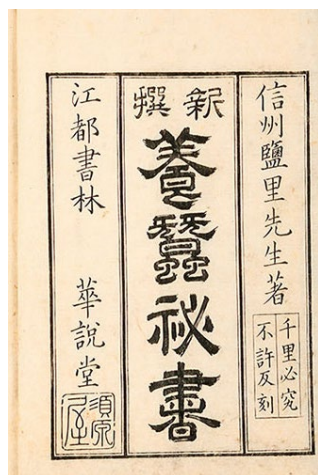 信州鹽里先生著
千里必究
不許反刻
新撰
養蠶祕書
江都書林　華說堂
須原屋